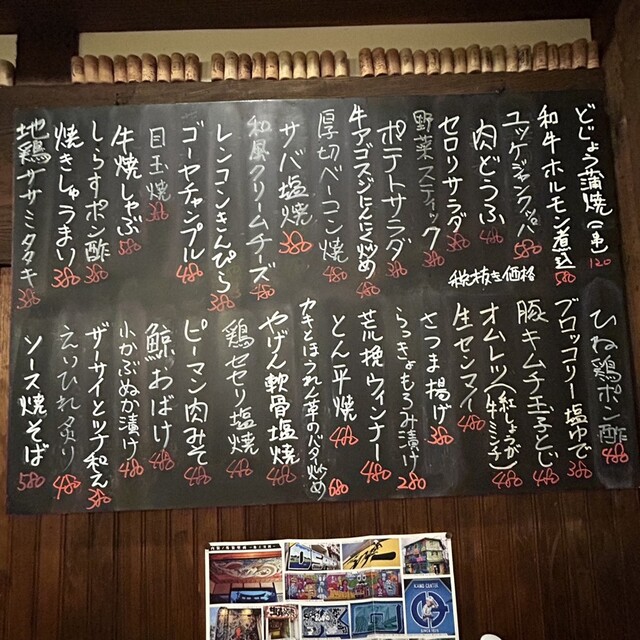 どじょう蒲焼(一串)120
和牛ホルモン煮込580
ユッケジャンクッパ580
肉どうふ480
セロリサラダ380
野菜スティック380
ポテトサラダ380
牛アゴスジにんにく炒め480
厚切ベーコン焼480
サバ塩焼380
和風クリームチーズ480
レンコンきんぴら380
ゴーヤチャンプル480
目玉焼380
牛焼しゃぶ580
しらすポン酢380
焼きしゅうまい380
地鶏ササミタタキ580
税抜き価格
ひね鶏ポン酢480
ブロッコリー塩ゆで380
豚キムチ玉子とじ480
オムレツ(紅しょうが牛ミンチ)480
生センマイ480
さつま揚げ380
らっきょもろみ漬け280
荒挽ウィンナー480
とん平焼480
カキとほうれん草のバター炒め680
やげん軟骨塩焼480
鶏セセリ塩焼480
ピーマン肉みそ480
鯨おばけ480
小かぶぬか漬け480
ザーサイとツナ和え380
えいひれ炙り480
ソース焼そば580